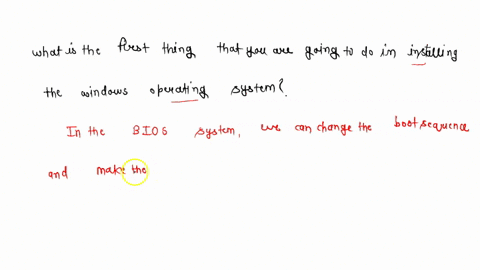 what is the first thing that you are going to do in installing
the windows operating system?
In the BIOS system, we can change the boot sequence
and make the